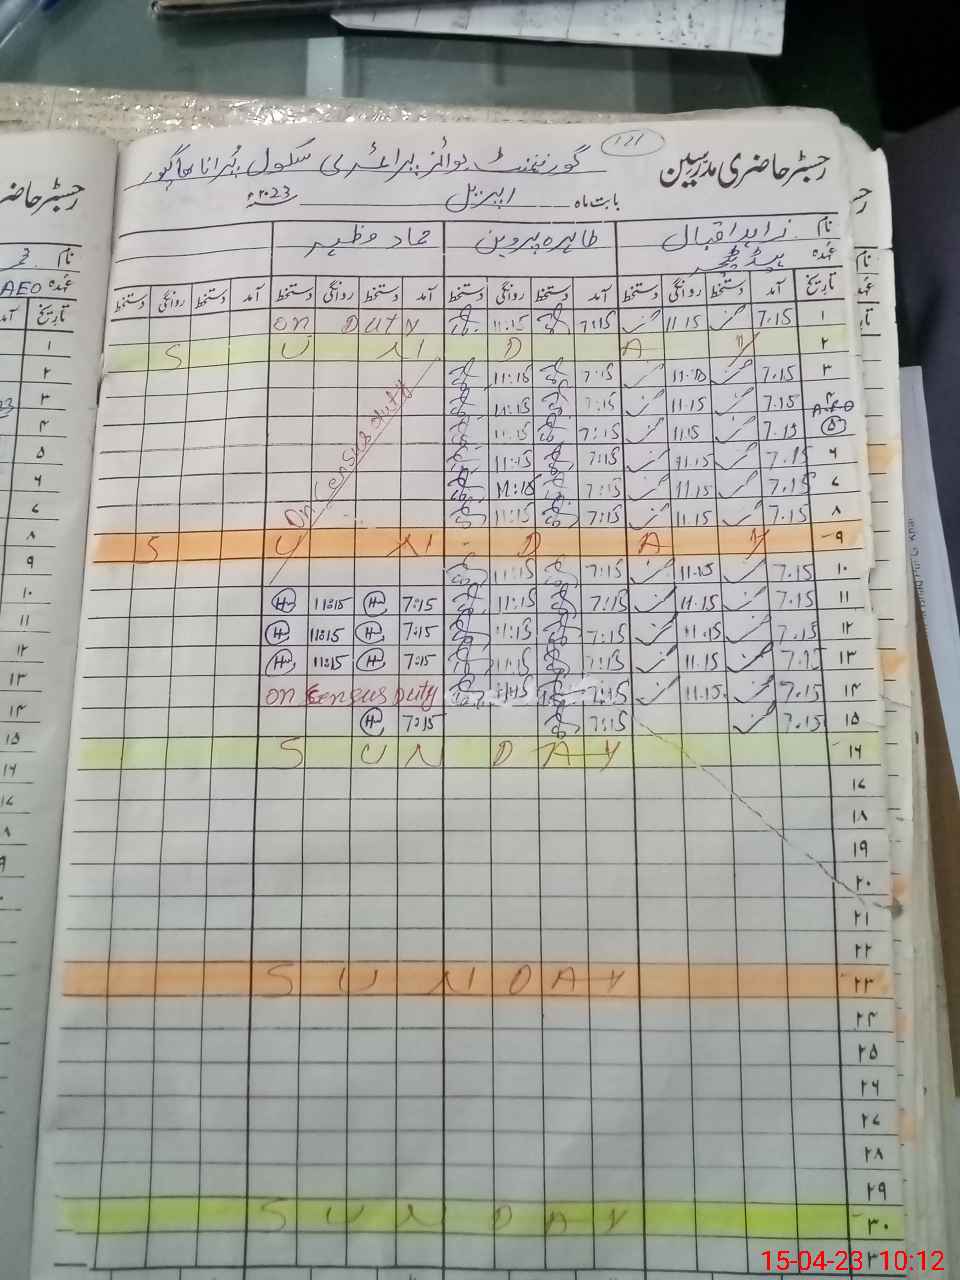 121
رجسٹر حاضری مدرسین
گورنمنٹ بوائز پرائمری سکول پُرانا بھاگپور
بابت ماہ اپریل 2023ء
نام زاہد اقبال طاہرہ پروین حماد مظہر
عہدہ ہیڈ ٹیچر
تاریخ آمد دستخط روانگی دستخط آمد دستخط روانگی دستخط آمد دستخط روانگی دستخط آمد دستخط روانگی دستخط
۱ 7.15 11.15 7:15 11:15 on DUTY
۲ S U N D A Y
۳ 7.15 11.15 7:15 11:15
7.15 11.15 7:15 11:15
۵ 7.15 11.15 7:15 11:15
۶ 7.15 11.15 7:15 11:15
7.15 11.15 7:15 11:15
۸ 7.15 11.15 7:15 11:15
On Census duty
۹ S U N D A Y
۱۰ 7.15 11.15 7:15 11:15
۱۱ 7.15 11.15 7:15 11:15 7:15 11:15
۱۲ 7.15 11.15 7:15 11:15 7:15 11:15
۱۳ 7.15 11.15 7:15 11:15 7:15 11:15
۱۴ 7.15 11.15 7:15 11:15 on census Duty
۱۵ 7.15 7:15 7:15
۱۶ S U N D A Y
۱۷
۱۸
۱۹
۲۰
۲۱
۲۲
۲۳ S U N D A Y
۲۴
۲۵
۲۶
۲۷
۲۸
۲۹
۳۰ S U N D A Y
رجسٹر حاضر
نام
عہدہ AEO
تاریخ
۱
۲
۳
۴
۵
۶
۷
۸
۹
۱۰
۱۱
۱۲
۱۳
۱۴
۱۵
۱۶
۱۷
15-04-23 10:12